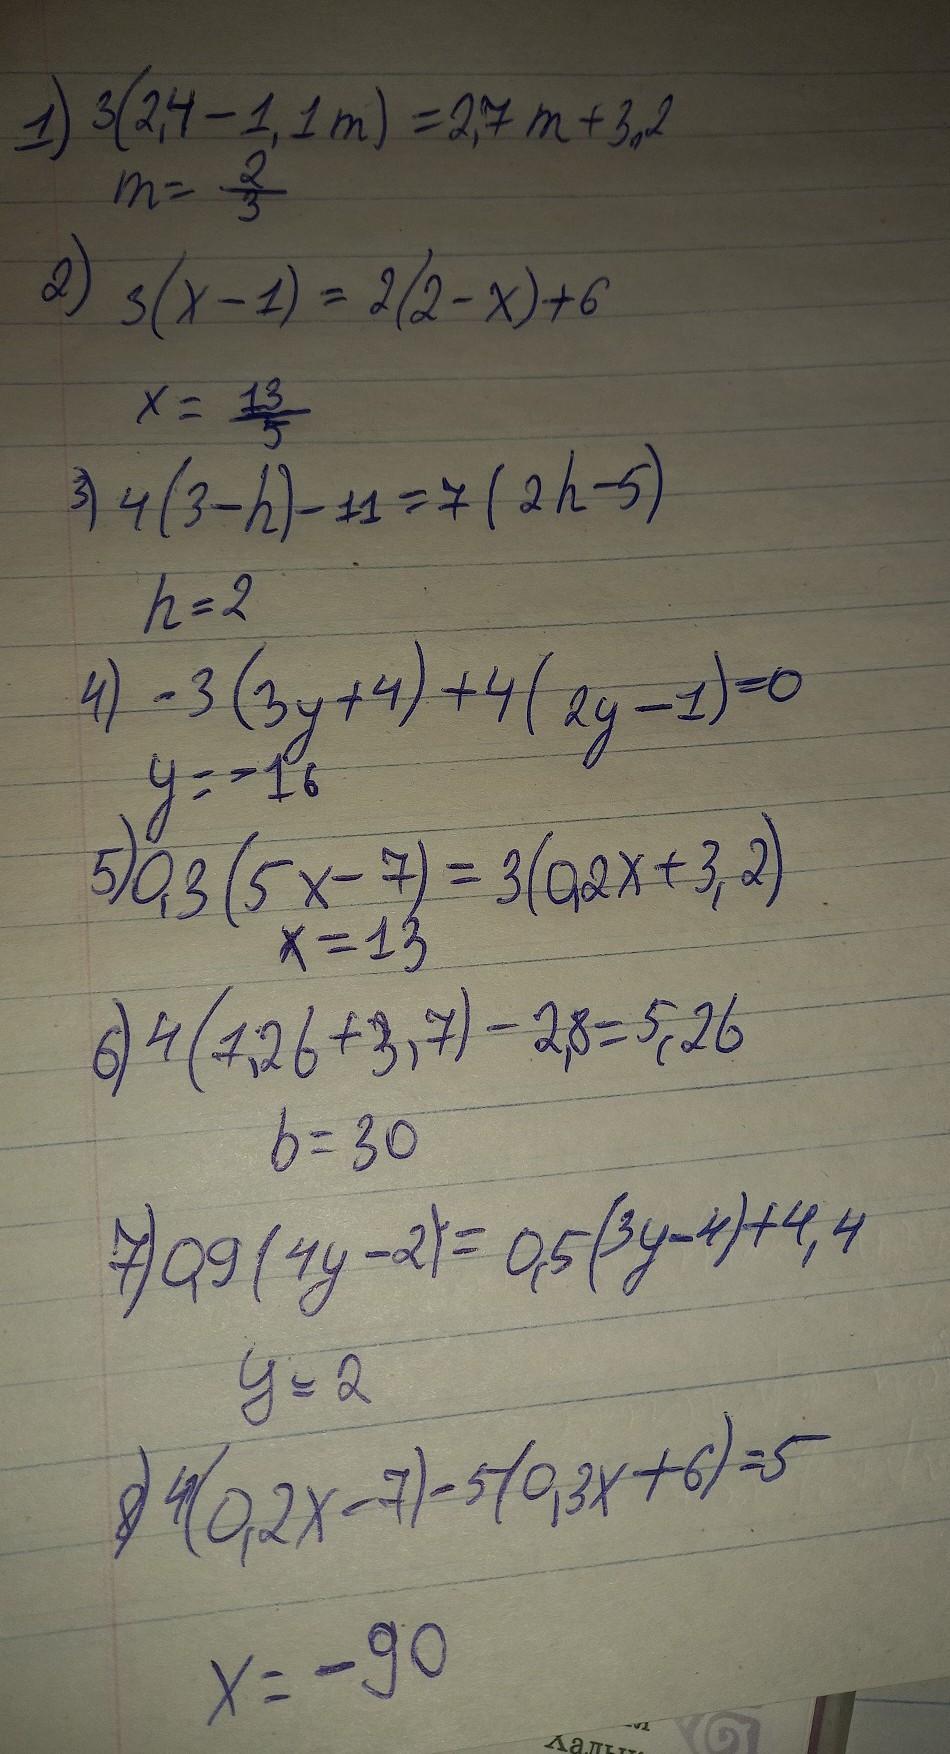 1) 3(2,4-1,1m)=2,7m+3,2
m=2/3
2) 3(x-1)=2(2-x)+6
x=13/5
3) 4(3-h)-11=7(2h-5)
h=2
4) -3(3y+4)+4(2y-1)=0
y=-16
5) 0,3(5x-7)=3(0,2x+3,2)
x=13
6) 4(1,2b+3,7)-2,8=5,2b
b=30
7) 0,9(4y-2)=0,5(3y-4)+4,4
y=2
8) 4(0,2x-7)-5(0,3x+6)=5
x=-90